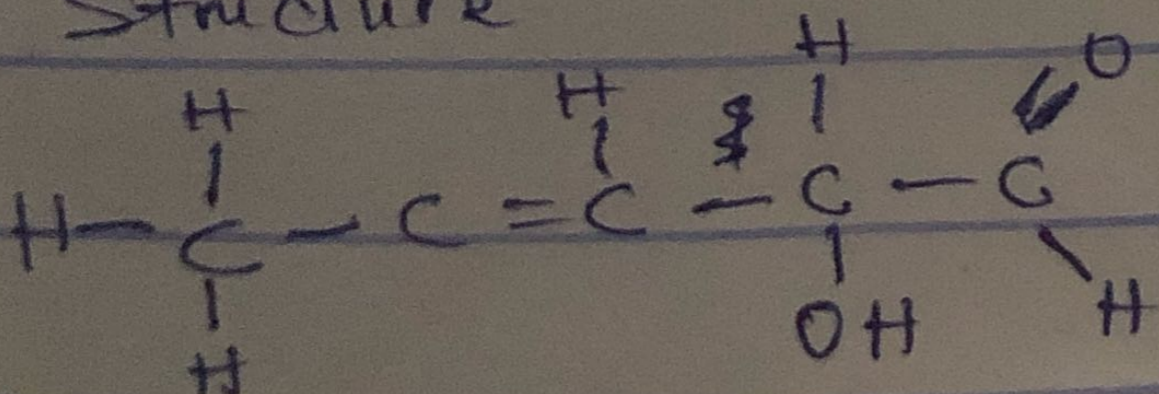 Structure
H H H O
H – C – C = C – C – C
H OH H